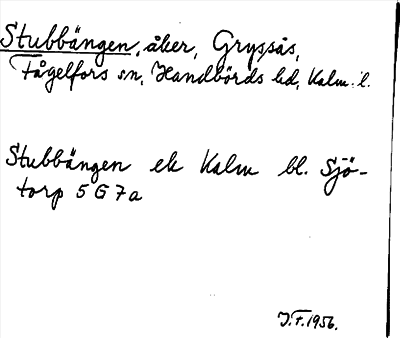 Stubbängen, åker, Gryssås,
Fågelfors sn, Handbörds hd, Kalm. l.
Stubbängen ek Kalm bl. Sjö-
torp 5 G 7a
J.F. 1956.